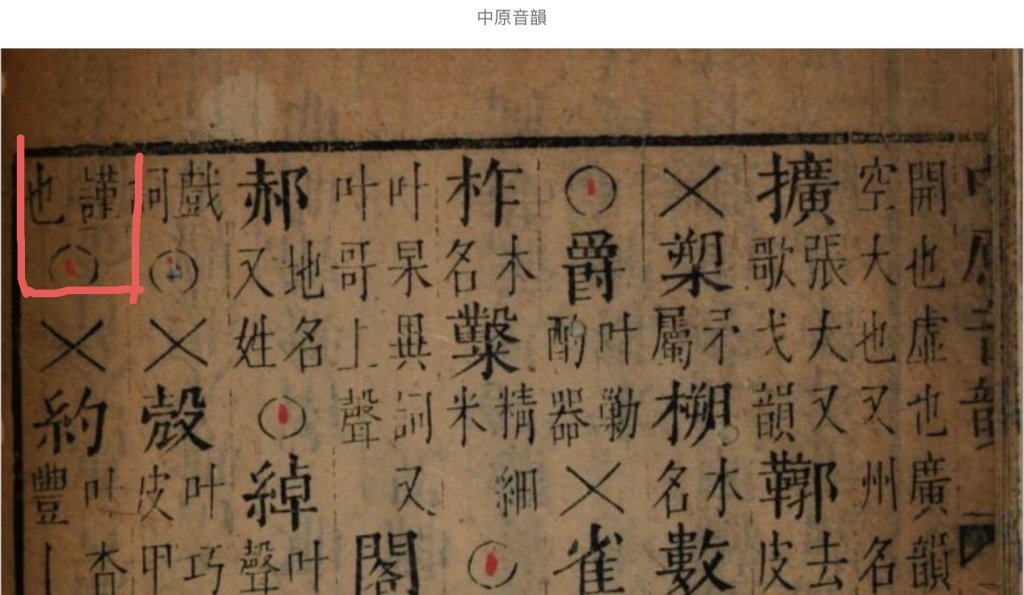 中原音韻
中原音韻
開也虛也廣韻
空大也又州名
擴張大又歌戈韻鞹去皮
×槊矛屬木名數
○爵叶勦酌器×雀
柞木名糳精細米○
叶杲異詞又叶哥上聲閣
郝地名又姓○綽叶聲
戲詞○×殼叶巧皮甲
謹也○×約叶杳豐